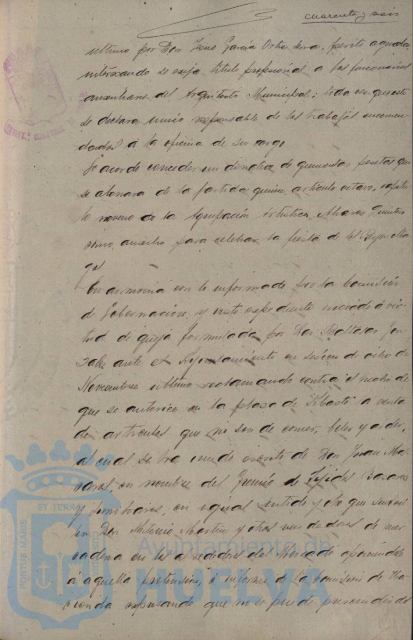 cuarenta y seis
último por Don José García Ochoa, perito agrado,
interesando se exija título profesional a los funcionarios
auxiliares del Arquitecto Municipal; toda vez que este
se declara único responsable de los trabajos encomen-
dados a la oficina de su cargo
Se acordó conceder un donativo de quinientas pesetas que
se abonara de la partida quinta, artículo octavo, capítu-
lo noveno de la Agrupación artística Álvarez Quintero
como auxilio para celebrar la fiesta de los Reyes Ma-
gos
En armonía con lo informado por la Comisión
de Gobernación, y visto expediente incoado a vir-
tud de queja formulada por Don Baltasar Gon-
zalez ante el Ayuntamiento en sesión de ocho de
Noviembre último reclamando contra el hecho de
que se autorice en la plaza de abasto la venta
de artículos que no son de comer, beber y arder,
al cual se ha unido escrito de Don Juan
en nombre del Gremio de Tejidos
y similares, en igual sentido y lo que
Don Antonio Martin y otros
en los alrededores del Mercado oponiendose
a aquella pretension, e informe de la comision de Ha-
cienda expresando que no se puede prescindir de
Ayuntamiento de
HUELVA